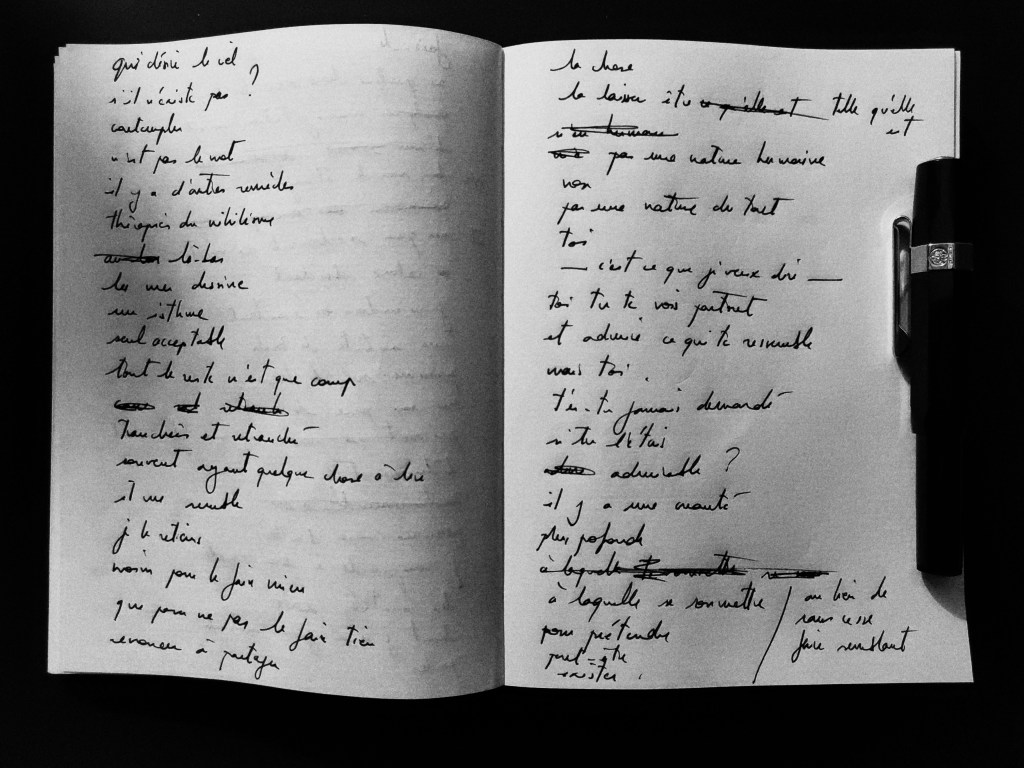 qui désire le ciel
s'il n'existe pas ?
contempler
n'est pas le mot
il y a d'autres remèdes
thérapies du nihilisme
là-bas
la mer dessine
un isthme
seul acceptable
tout le reste n'est que camp
tranchées et retranché
souvent ayant quelque chose à
il me semble
je le retiens
moins pour le faire mien
que pour ne pas le faire tien
renoncer à partager
la chose
la laisser être ce qu'elle est telle qu'elle
est
n'en humaine
pas une nature humaine
non
pas une nature du tout
toi
— c'est ce que je veux dire —
toi tu te vois partout
et admire ce qui te ressemble
mais toi
t'es-tu jamais demandé
si tu étais
admirable ?
il y a une
plus profonde
à laquelle se soumettre
à laquelle se soumettre / au lieu de
sans cesse
faire semblant
pour prétendre
peut-être
exister.